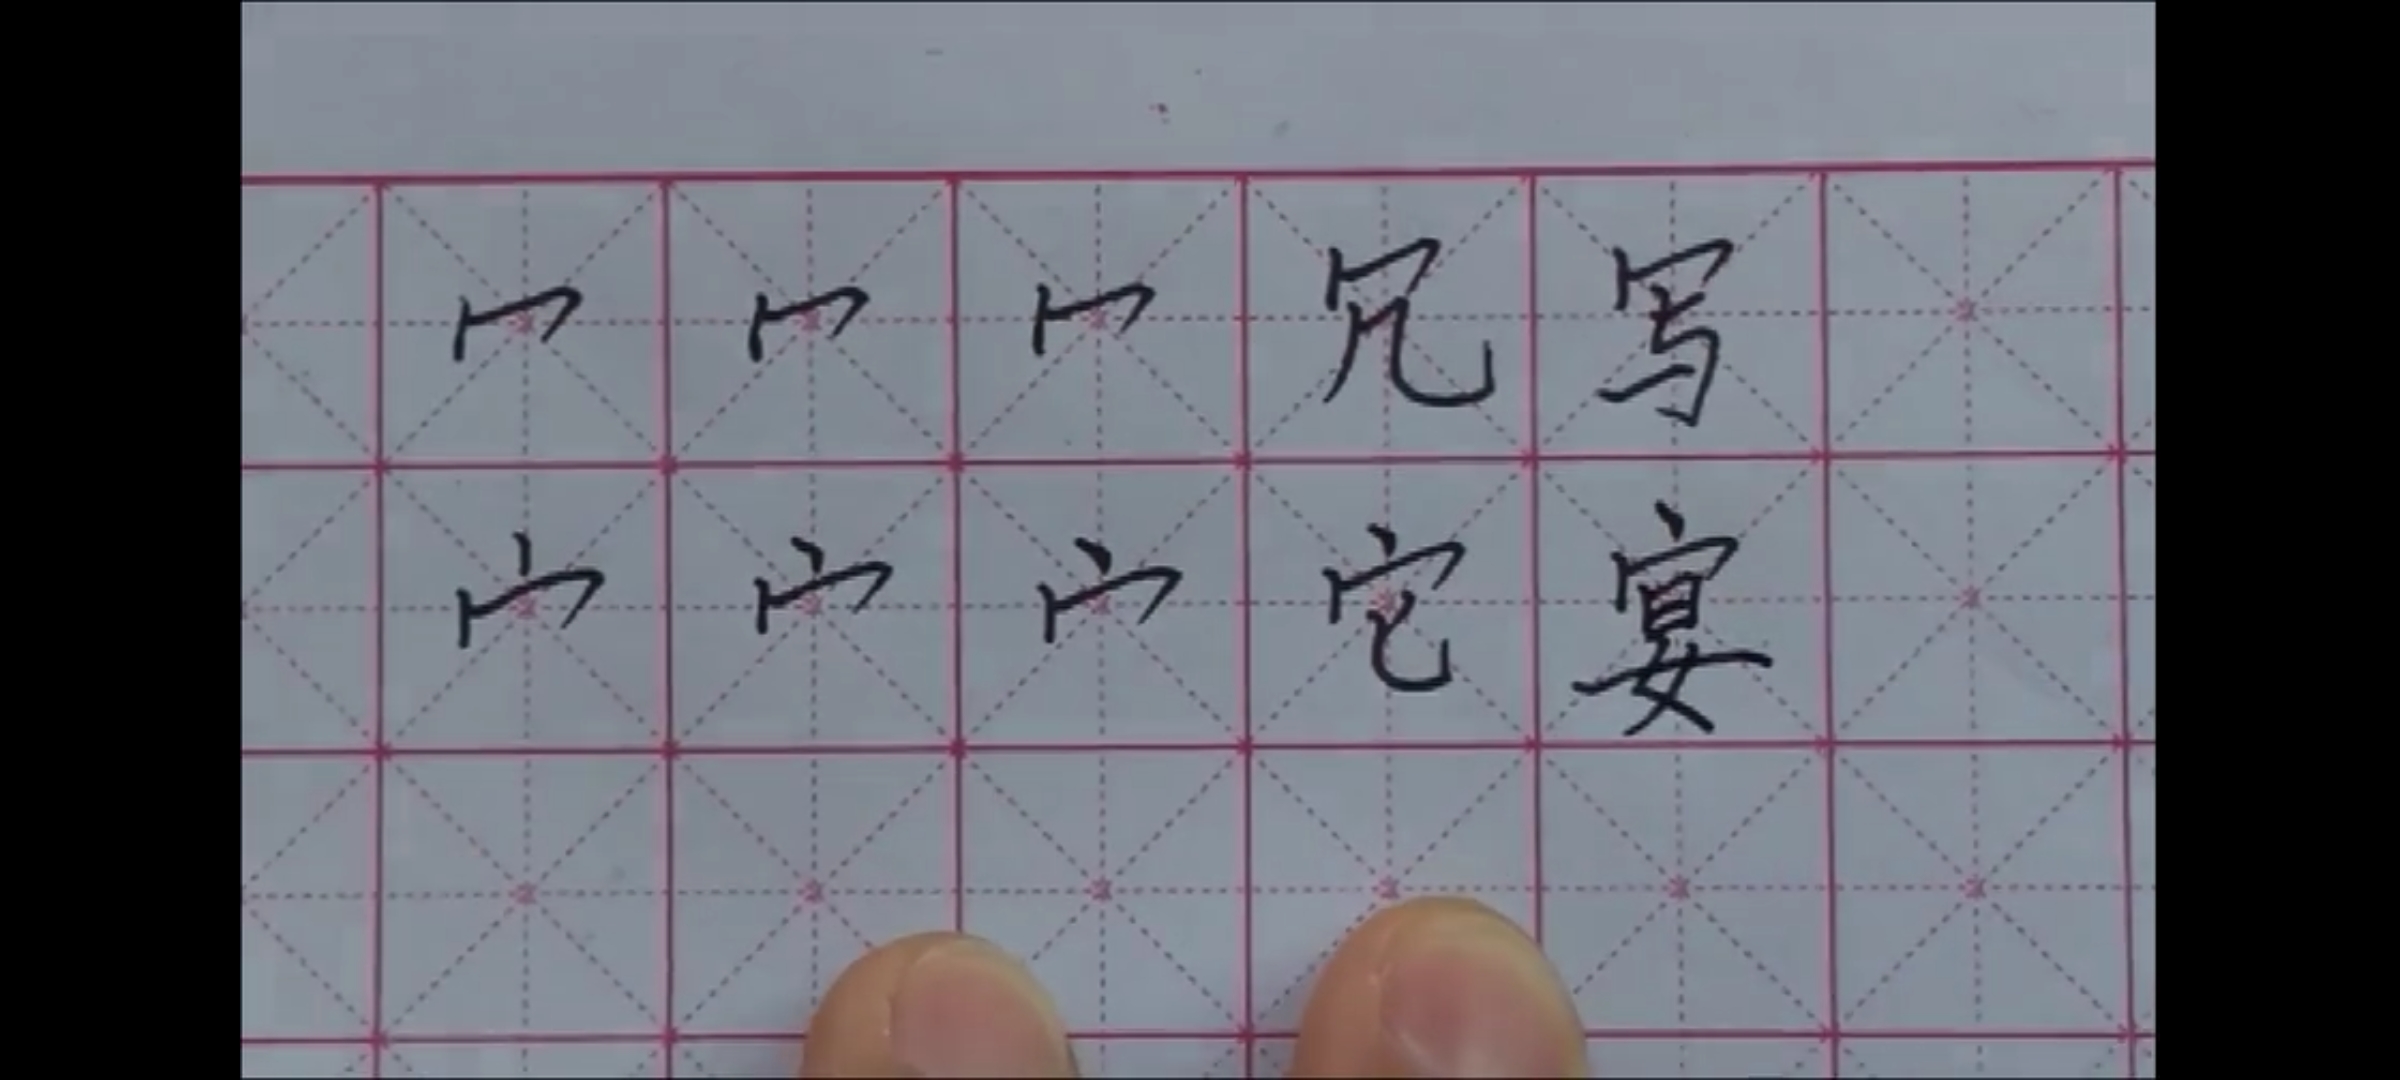 冖冖冖冗写
宀宀宀它宴